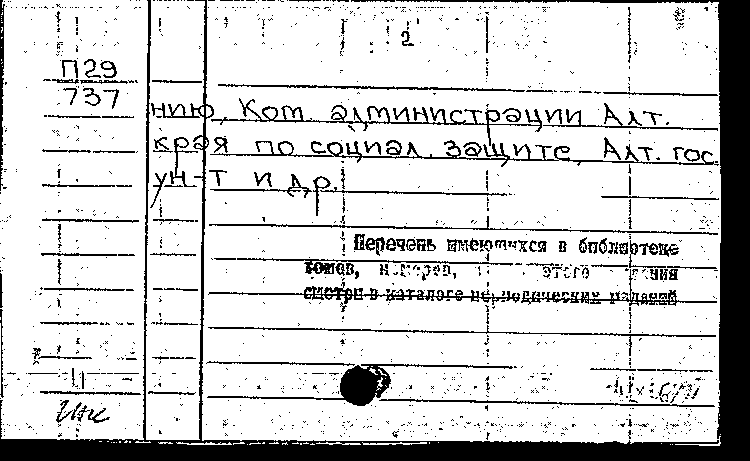 2
П29
737
нию, Ком. администрации Алт.
края по социал. защите, Алт. гос
ун-т и др.
Перечень имеющихся в библиотеке
томов, номеров, этого
смотри в каталоге периодических изданий